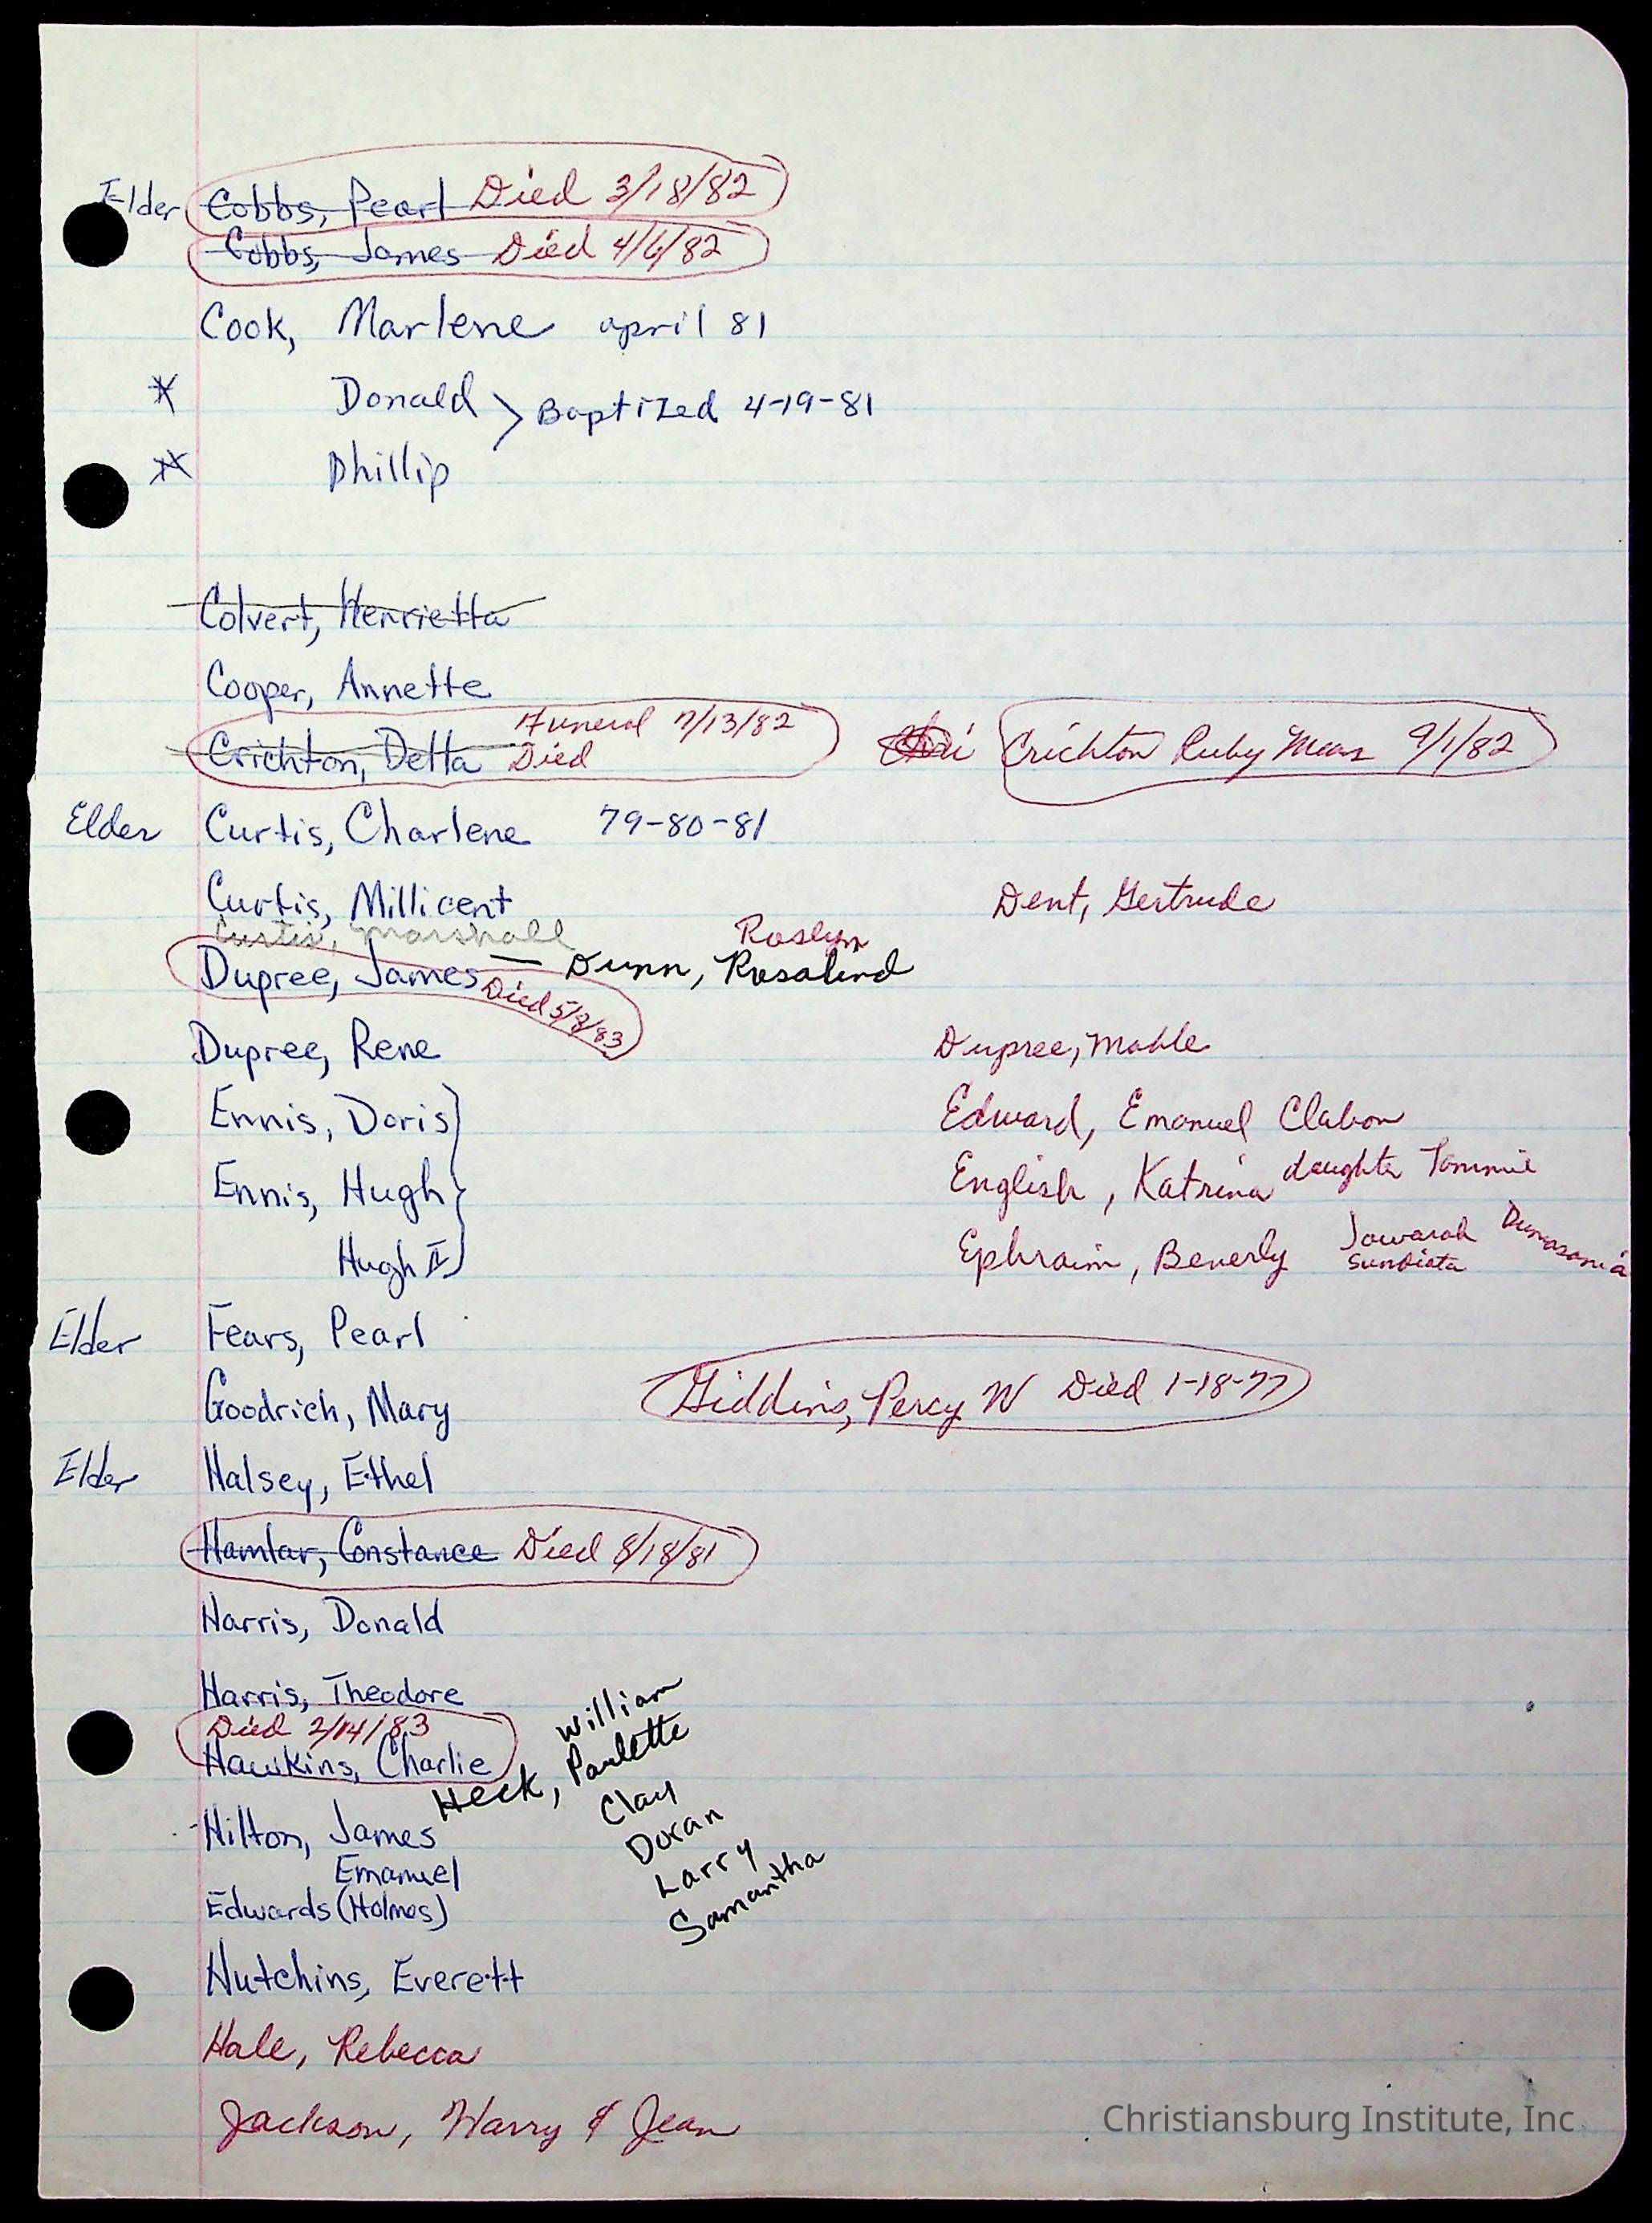 Elder Cobbs, Pearl Died 3/18/82
Cobbs, James Died 4/6/82
Cook, Marlene april 81
* Donald > Baptized 4-19-81
* Phillip
Colvert, Henrietta
Cooper, Annette
Funeral 7/13/82
Crichton, Delta Died
Crichton Ruby 9/1/82
Elder Curtis, Charlene 79-80-81
Curtis, Millicent
Dent, Gertrude
Curtis, Marshall
Roslyn
Dupree, James — Dunn, Rosalind
Died 5/8/83
Dupree, Rene
Dupree, Mable
Ennis, Doris
Edward, Emanuel Clabon
Ennis, Hugh
English, Katrina daughter Tommie
Hugh II
Ephraim, Beverly Jawarah
Sundiata
Elder Fears, Pearl
Goodrich, Mary
Giddins, Percy W Died 1-18-77
Elder Halsey, Ethel
Hamlar, Constance Died 8/18/81
Harris, Donald
Harris, Theodore
Died 2/14/83
Hawkins, Charlie
William
Heck, Paulette
Clay
Doran
Larry
Samantha
Hilton, James
Emanuel
Edwards (Holmes)
Hutchins, Everett
Hale, Rebecca
Jackson, Harry & Jean
Christiansburg Institute, Inc